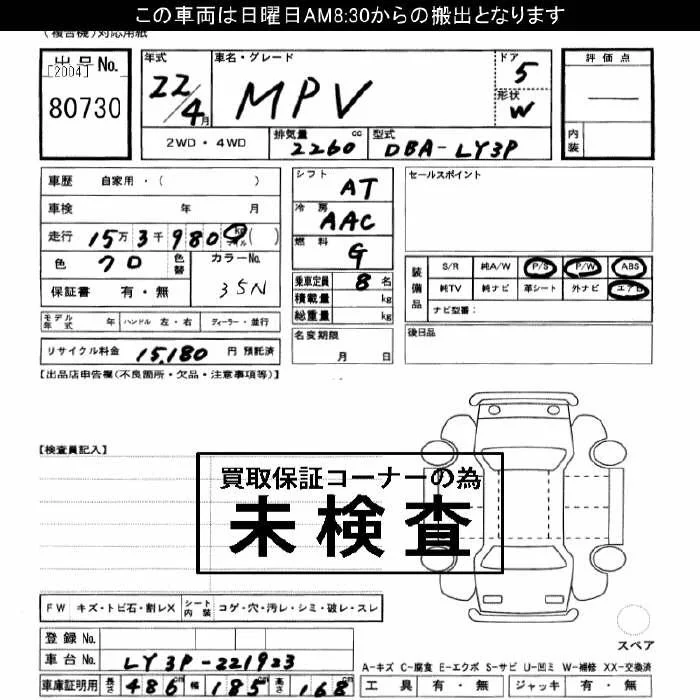 この車両は日曜日AM8:30からの搬出となります
(複合機)対応用紙
出品No.
[2004]
80730
年式
22/4月
車名・グレード
MPV
ドア
5
形状
W
評価点
―
内装
2WD・4WD
排気量
2260 cc
型式
DBA-LY3P
車歴 自家用・( )
車検 年 月
走行 15万3千980 km マイル ( )
色 クロ 色替
カラーNo.
35N
保証書 有・無
モデル年式 年 ハンドル 左・右 ディーラー・並行
リサイクル料金 15,180 円 預託済
シフト
AT
冷房
AAC
燃料
G
乗車定員 8 名
積載量 kg
総重量 kg
名変期限
月 日
セールスポイント
装備品
S/R 純A/W P/S P/W ABS
純TV 純ナビ 革シート 外ナビ エアB
ナビ型番:
後日品
【出品店申告欄(不良箇所・欠品・注意事項等)】
【検査員記入】
買取保証コーナーの為
未検査
FW キズ・トビ石・割レX シート内装 コゲ・穴・汚レ・シミ・破レ・スレ
スペア
登録No.
車台No. LY3P-221923
車庫証明用 長さ 486 cm 幅 185 cm 高さ 168 cm
A-キズ C-腐食 E-エクボ S-サビ U-凹ミ W-補修 XX-交換済
工具 有・無 ジャッキ 有・無